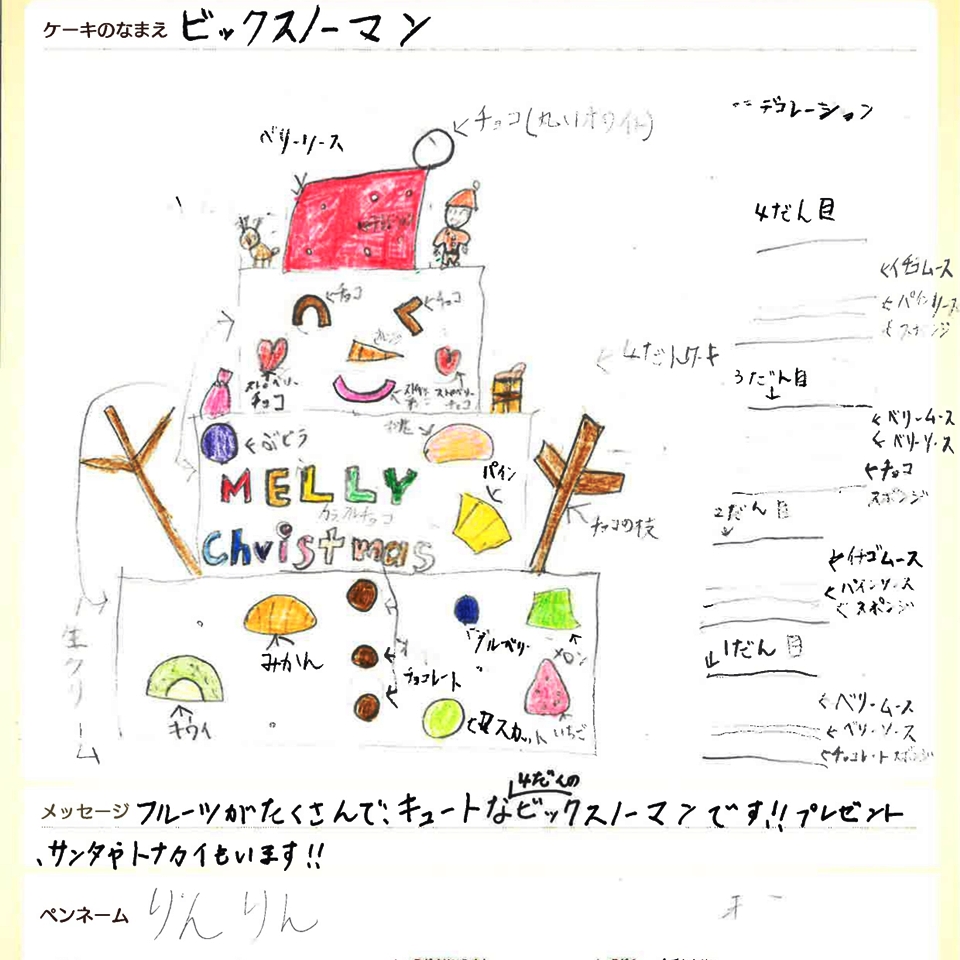 ケーキのなまえ ビックスノーマン
デコレーション
チョコ(丸いホワイト)
ベリーソース
4だん目
←イチゴムース
←パインソース
←スポンジ
←チョコ
←チョコ
4だんケーキ
3だん目
ストロベリー
チョコ
ストロベリー
チョコ
←ベリームース
←ベリーソース
←チョコ
スポンジ
←ぶどう
パイン
MELLY
カラフルチョコ
Christmas
チョコの枝
2だん目
←イチゴムース
パインソース
←スポンジ
生クリーム
みかん
キウイ
チョコレート
ブルーベリー
メロン
いちご
マスカット
1だん目
←ベリームース
←ベリーソース
←チョコレートスポンジ
メッセージ フルーツがたくさんで、キュートな4だんのビックスノーマンです!!プレゼント
、サンタやトナカイもいます!!
ペンネーム りんりん